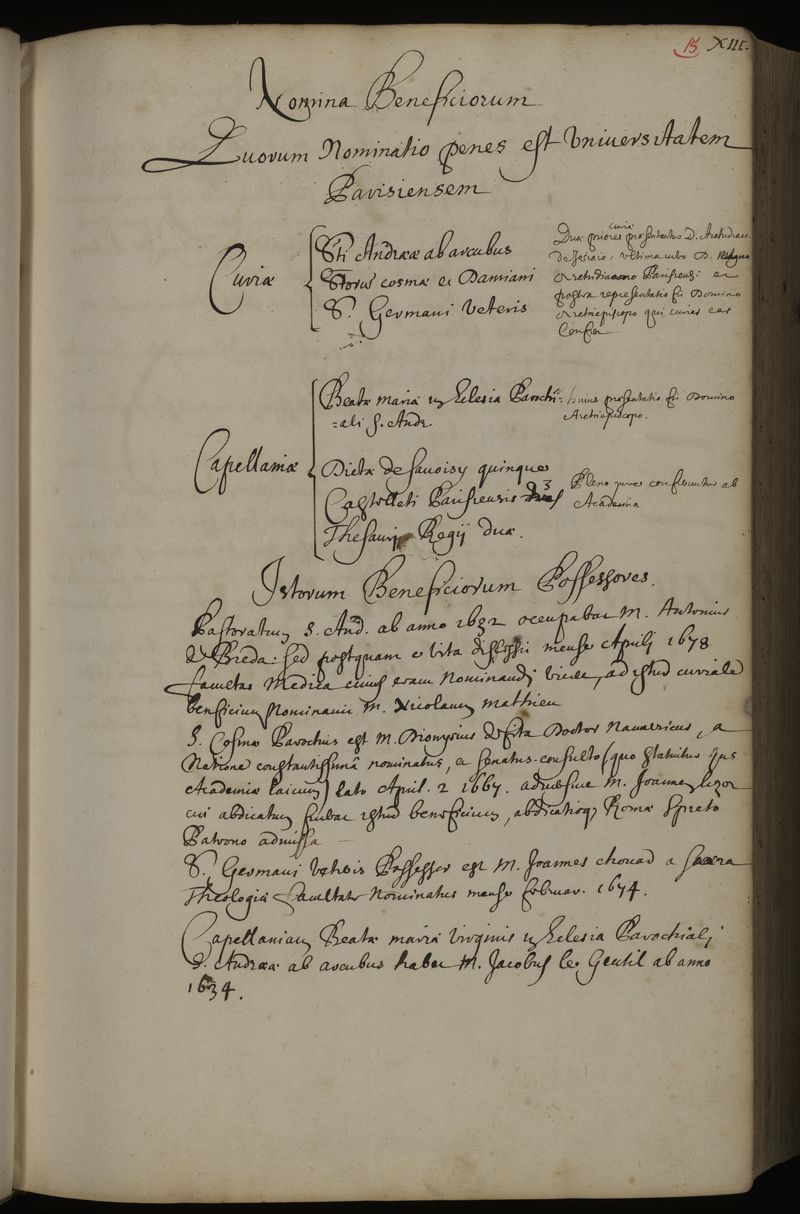 15 XIII.
Nomina Beneficiorum
Quorum Nominatio penes est Vniuersitatem
Parisiensem
Curiæ
Sti Andreæ ab arcubus
Storum cosmæ et Damiani
S. Germani Veteris
Duæ priores curiæ præsentantur D. Archidiacono
de Josaio: vltima vero D. magno
Archidiacono Parisiensi et
postea repræsentatio fit Domino
Archiepiscopo qui curias eas
Confert
Capellaniæ
Beatæ mariæ in Eclesia Parochi=
=ali S. Andr.
huius præsentatio fit Domino
Archiepiscopo.
Dictæ de sauoisy quinque
Castelleti Parisiensis 3
Thesaurj Regij duæ.
Pleno jure conferuntur ab
Academia
Istorum Beneficiorum Possessores.
Pastoratum S. And. ab anno 1652 occupabat M. Antonius
de Breda: sed postquam e vita discessit mense Aprilj 1678
facultas Medica cuius erant Nominandj vices, ad istud curiale
beneficium Nominauit M. Nicolaum mathieu
S. Cosmæ Parochus est M. Dionysius deffita Doctor Nauarricus, a
Natione constantissimâ nominatus, et senatus-consulto (quo statuitur jus
Academiæ laicum) lato April. 2 1667. aduersus M. Joannem lizot
cui abdicatum fuerat istud beneficium, abdicatioq; Romæ spreto
Patrono admissa
S. Germani veteris Possessor est M. Joannes chouad a sacra
Theologiæ facultate Nominatus mense februar. 1674.
Capellaniam Beatæ mariæ virginis in Eclesia Parochialj
S. Andreæ ab arcubus habet M. Jacobus le Gentil ab anno
1634.